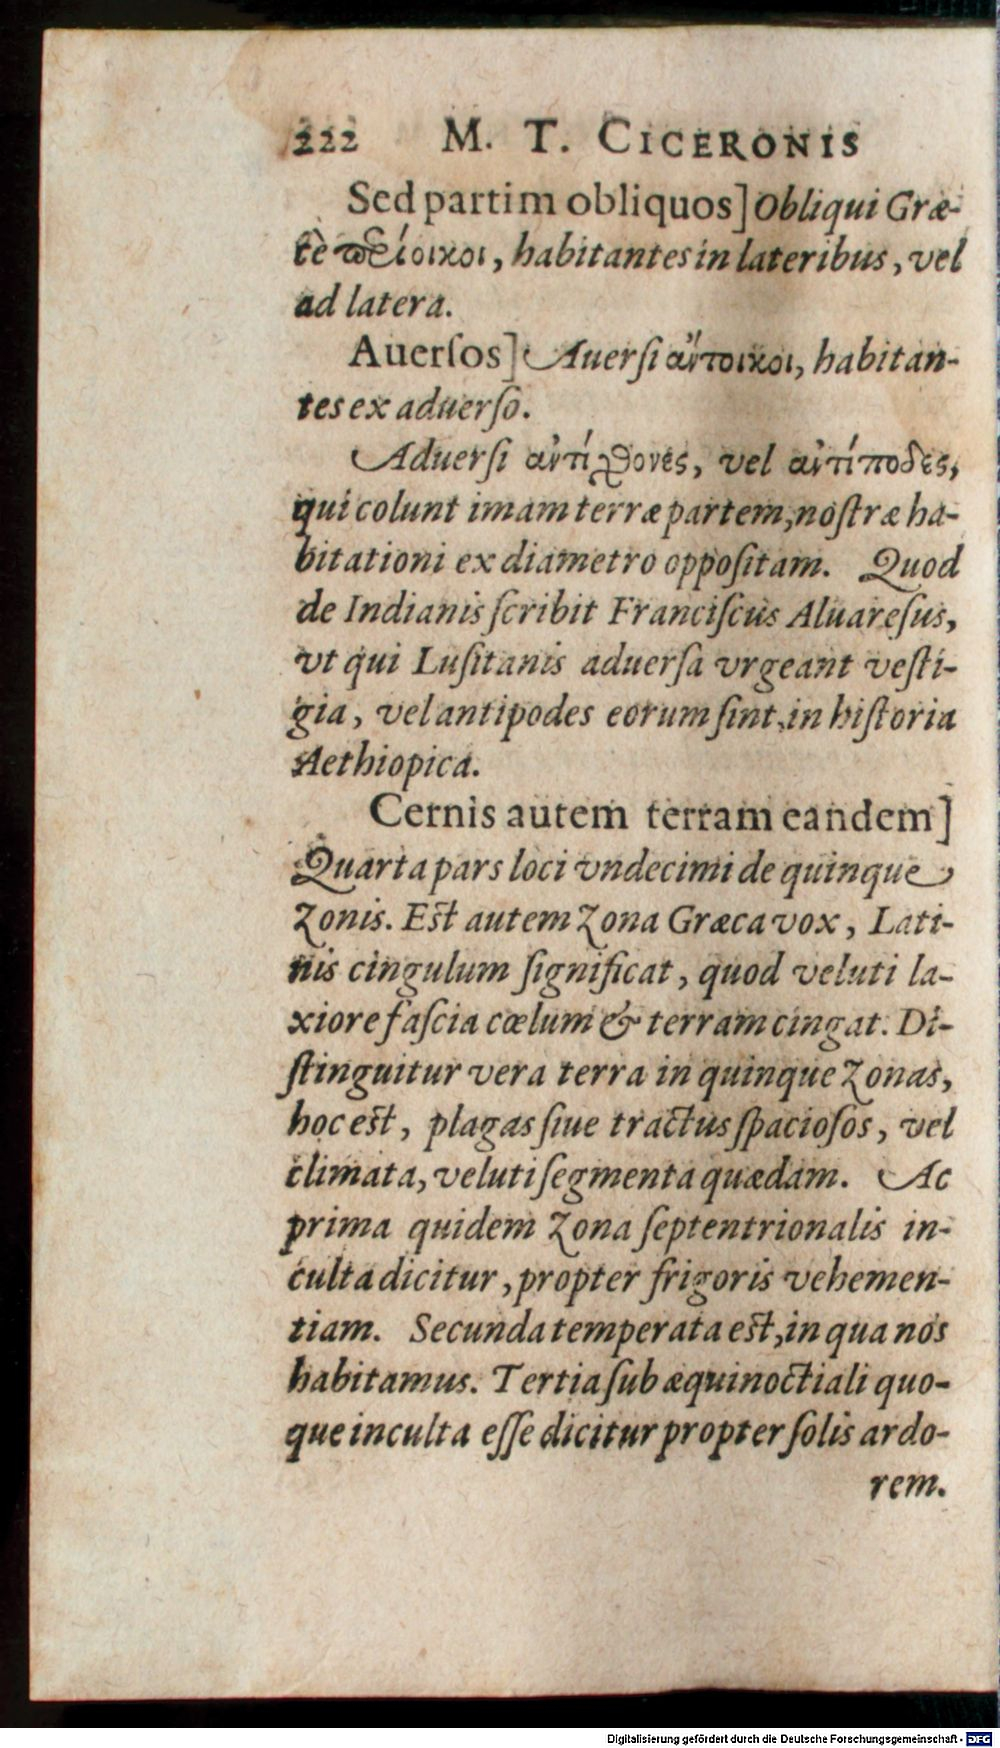 222 M. T. CICERONIS
Sed partim obliquos] Obliqui Græ-
cè περίοικοι, habitantes in lateribus, vel
ad latera.
Auerſos] Auerſi ἄντοικοι, habitan-
tes ex aduerſo.
Aduerſi ἀντίχθονες, vel ἀντίποδες,
qui colunt imam terræ partem, noſtræ ha-
bitationi ex diametro oppoſitam. Quod
de Indianis ſcribit Franciſcus Aluareſus,
vt qui Luſitanis aduerſa vrgeant veſti-
gia, vel antipodes eorum ſint, in hiſtoria
Aethiopica.
Cernis autem terram eandem]
Quarta pars loci vndecimi de quinque
Zonis. Eſt autem Zona Græca vox, Lati-
nis cingulum ſignificat, quod veluti la-
xiore faſcia cœlum & terram cingat. Di-
ſtinguitur vera terra in quinque Zonas,
hoc eſt, plagas ſiue tractus ſpacioſos, vel
climata, veluti ſegmenta quædam. Ac
prima quidem Zona ſeptentrionalis in-
culta dicitur, propter frigoris vehemen-
tiam. Secunda temperata eſt, in qua nos
habitamus. Tertia ſub æquinoctiali quo-
que inculta eſſe dicitur propter ſolis ardo-
rem.
Digitalisierung gefördert durch die Deutsche Forschungsgemeinschaft - DFG